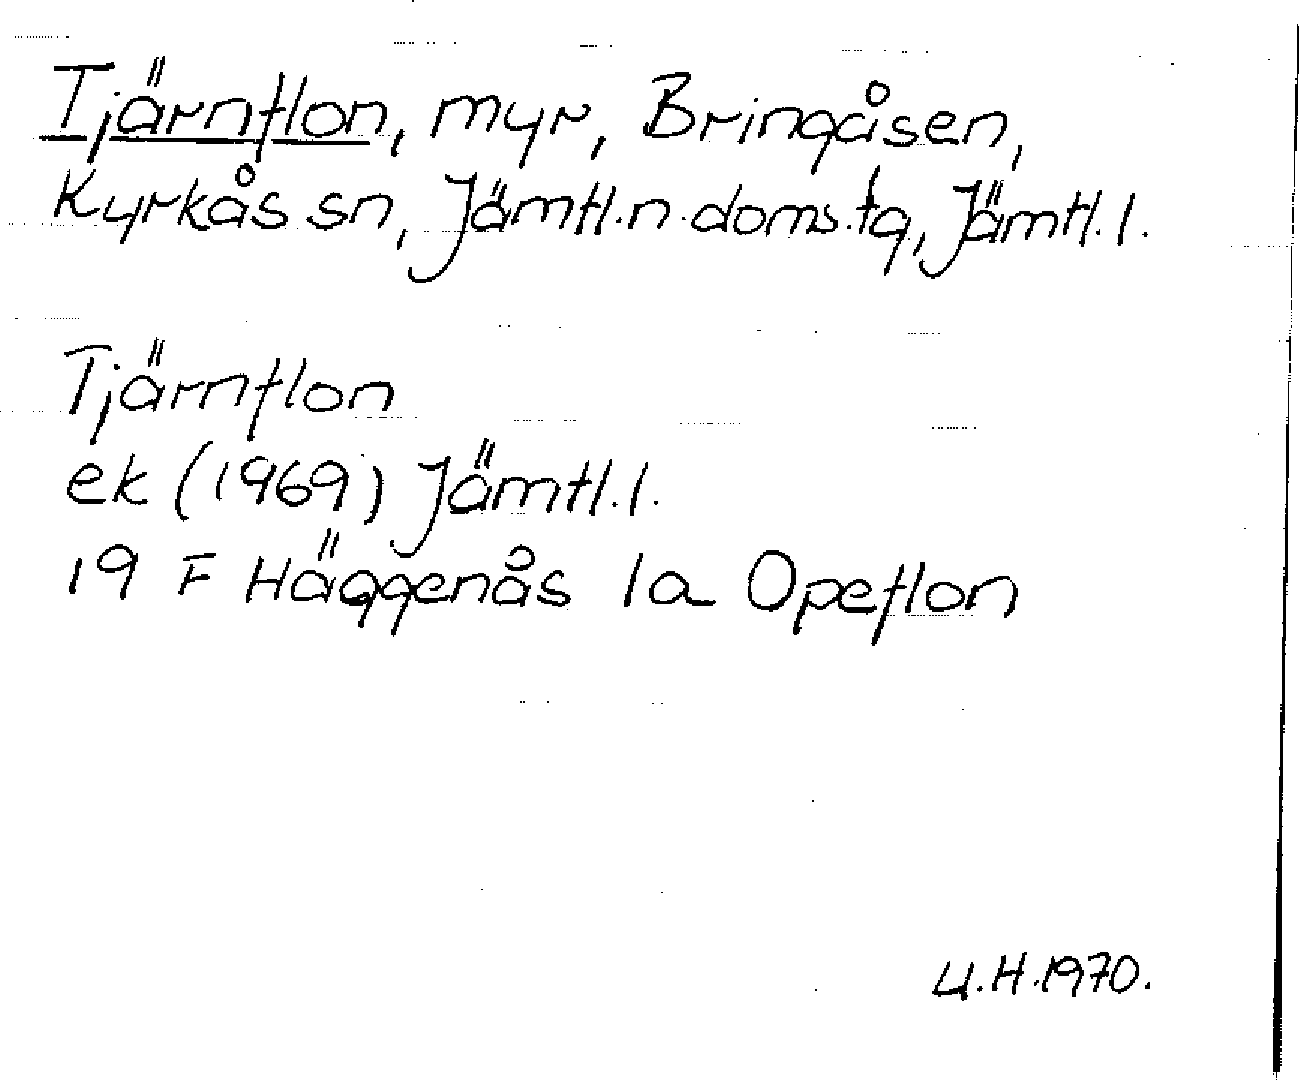 Tjärnflon, myr, Bringåsen,
Kyrkås sn, Jämtl.n.doms.tg, Jämtl.l.
Tjärnflon
ek (1969) Jämtl.l.
19 F Häggenås 1a Opeflon
U.H.1970.